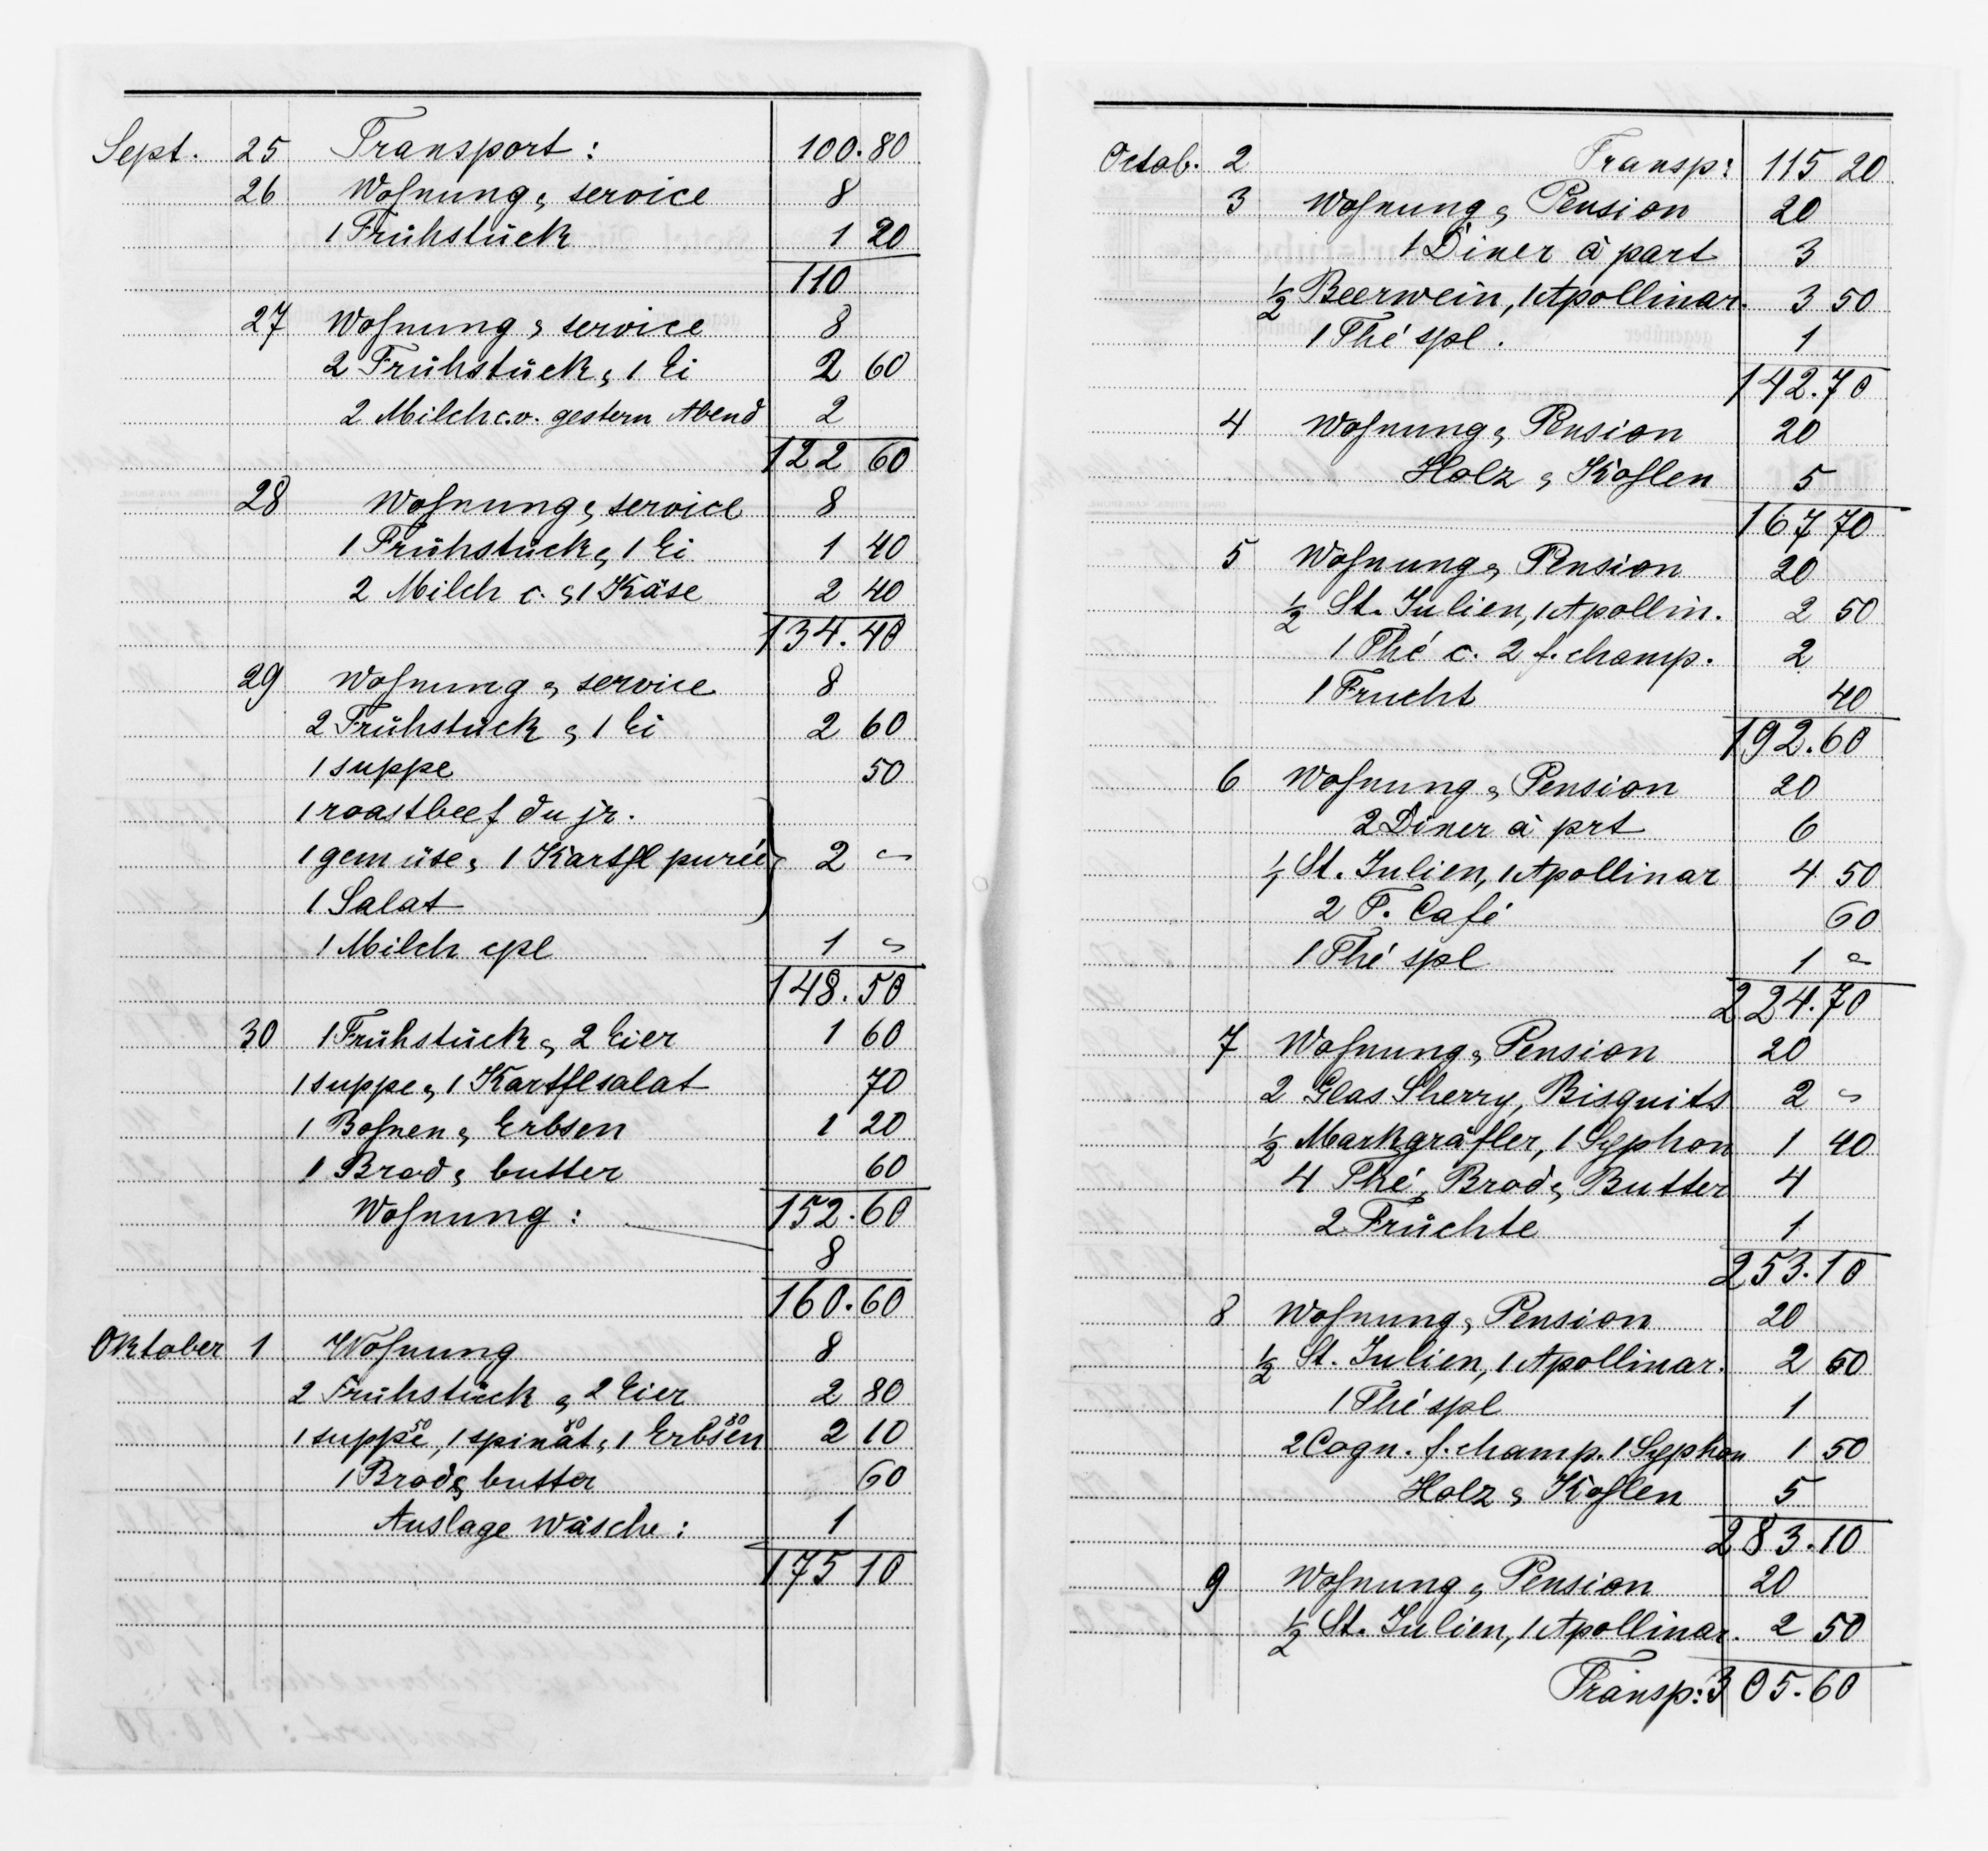 Sept. 25 Transport: 100.80
26 Wohnung & service 8
1 Frühstück 1 20
110
27 Wohnung & service 8
2 Frühstück & 1 Ei 2 60
2 Milch c.v. gestern Abend 2
122 60
28 Wohnung & service 8
1 Frühstück & 1 Ei 1 40
2 Milch c. & 1 Käse 2 40
134.40
29 Wohnung & service 8
2 Frühstück & 1 Ei 2 60
1 suppe 50
1 roastbeef du jr.
1 gemüse & 1 Kartfl purée 2 -
1 Salat
1 Milch cpl 1 -
148.50
30 1 Frühstück & 2 Eier 1 60
1 suppe & 1 Kartflsalat 70
1 Bohnen & Erbsen 1 20
1 Brod & butter 60
Wohnung: 152.60
8
160.60
Oktober 1 Wohnung 8
2 Frühstück & 2 Eier 2 80
50 80 80
1 suppe, 1 spinat & 1 Erbsen 2 10
1 Brod & butter 60
Auslage Wäsche: 1
175 10
Octob. 2 Transp: 115 20
3 Wohnung & Pension 20
1 Diner à part 3
1/2 Beerwein, 1 Apollinar. 3 50
1 Thé spl. 1
142.70
4 Wohnung & Pension 20
Holz & Kohlen 5
167 70
5 Wohnung & Pension 20
1/2 St. Julien, 1 Apollin. 2 50
1 Thé c. 2 f. champ. 2
1 Frucht 40
192.60
6 Wohnung & Pension 20
2 Diner à prt 6
1/1 St. Julien, 1 Apollinar 4 50
2 T. Café 60
1 Thé spl 1 -
224.70
7 Wohnung & Pension 20
2 Glas Sherry, Bisquits 2 -
1/2 Markgräfler, 1 Syphon 1 40
4 Thé, Brod & Butter 4
2 Früchte 1
253.10
8 Wohnung & Pension 20
1/2 St. Julien, 1 Apollinar. 2 50
1 Thé spl 1
2 Cogn. f. champ. 1 Syphon 1 50
Holz & Kohlen 5
283.10
9 Wohnung & Pension 20
1/2 St. Julien, 1 Apollinar. 2 50
Transp: 305.60